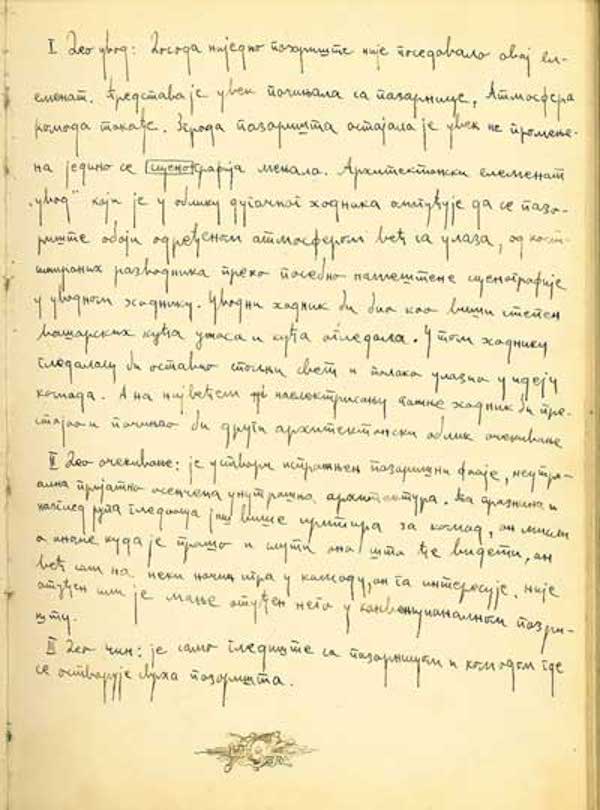 I Део увод: Досада ниједно позориште није поседовало овај ел-
еменат. Представа је увек почињала са позорнице, Атмосфера
комада такође. Зграда позоришта остајала је увек не промење-
на једино се сценографија мењала. Архитектонски елеменат
„увод" који је у облику дугачког ходника омогућује да се позо-
риште обоји одређеном атмосфером већ са улаза, од кост-
имираних разводника преко посебно намештене сценографије
у уводном ходнику. Уводни ходник би био као виши степен
вашарских кућа ужаса и кућа огледала. У том ходнику
гледалац би оставио спољни свет и полако улазио у идеју
комада. А на највећем наелектрисању пажње ходник би пре-
стајао и почињао би други архитектонски облик очекивање
II Део очекивање: је у ствари позоришни фоаје, неутра-
ална пријатно осенчена унутрашна архитектура. Та празнина и
група гледаоца још више за комад, он мисли
о ономе куда је прошо и слути оно шта ће видети, он
већ сам на неки начин игра у комаду, он га интересује, није
отуђен или је мање отуђен него у конвенционалном позри-
шту.
III Део чин: је само гледиште са позорницом и комадом где
се остварује сврха позоришта.